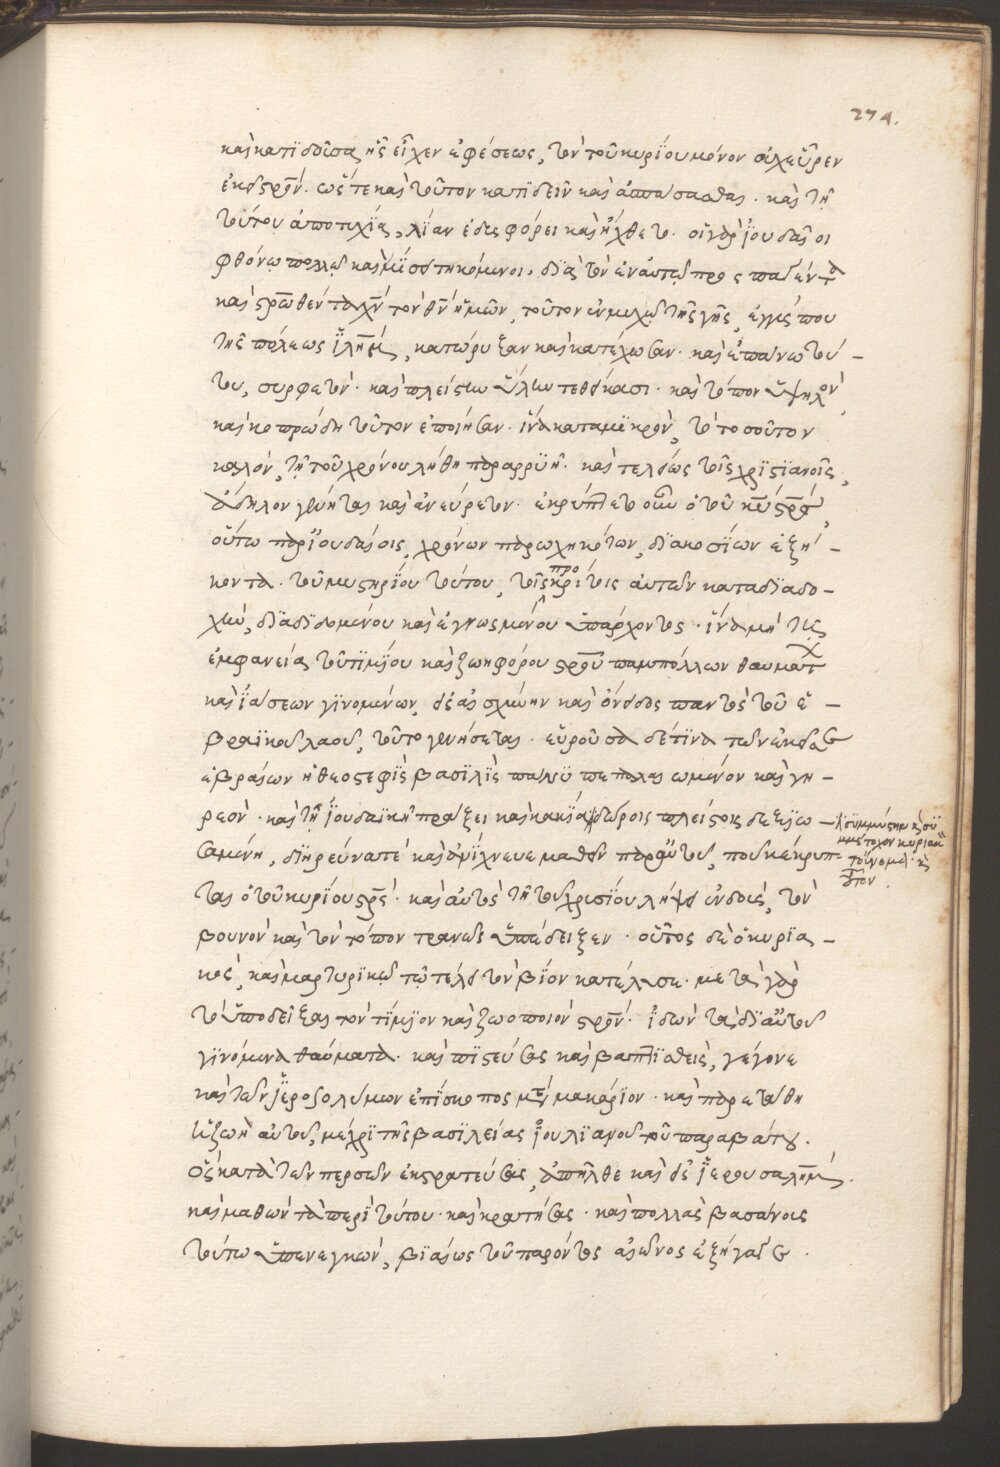 274.
καὶ κατιδοῦσα ἧς εἶχεν ἐφέσεως, τὸν τοῦ κυρίου μόνον οὐχ εὗρεν
ἐκεῖ σρον̄. ὥστε καὶ τοῦτον κατιδεῖν καὶ ἀσπάσασθαι. καὶ τῇ
τούτου ἀποτυχίᾳ, λίαν ἐδυσφόρει καὶ ἤχθετο. οἱ γὰρ ἰουδαῖοι
φθόνῳ πολλῷ καὶ μίσει τηκόμενοι, διὰ τὸν ἐν αὐτῷ προσπαγέντα
καὶ σρωθέντα χν̄ τὸν θν̄ ἡμῶν, τοῦτον ἐν μυχῷ τῆς γῆς, ἐγγύς που
τῆς πόλεως ἰλημ̄, κατώρυξαν καὶ κατέχωσαν. καὶ ἐπάνω τού-
του, συρφετὸν καὶ πλείστην ὕλην τεθείκασι. καὶ τόπον ὑψηλὸν,
καὶ κοπρώδη τοῦτον ἐποίησαν. ἵνα κατὰ μικρὸν, τὸ τοσοῦτον
καλὸν, τῇ τοῦ χρόνου λήθῃ παραρρυῇ. καὶ τελείως τοῖς χριστιανοῖς,
ἄδηλον γένηται καὶ ἀνεύρετον. ἐκρύπτετο οὖν ὁ τοῦ κῡ σρο̄ς,
οὕτω παρ' ἰουδαίοις, χρόνων παρῳχηκότων, διακοσίων ἑξή-
κοντα. τοῦ μυστηρίου τούτου, τοῖς προκρίτοις αὐτῶν κατὰ διαδο-
χὴν, διαδιδομένου καὶ ἐγνωσμένου ὑπάρχοντος. ἵνα μὴ τῆς
ἐμφανείας τοῦ τιμίου καὶ ζωηφόρου σροῦ παμπόλλων θαυμάτων
καὶ ἰάσεων γινομένων, εἰς αἰσχύνην καὶ ὄνειδος παντὸς τοῦ ἑ-
βραϊκοῦ λαοῦ, τοῦτο γενήσεται. εὑροῦσα δέ τινα τῶν ἐκεῖσε
ἑβραίων ἡ θεοσεφὴς βασιλὶς πάνυ πεπαλαιωμένον καὶ γη-
ρεὸν. καὶ τῇ ἰουδαϊκῇ πράξει καὶ κακίᾳ, δώροις πλείστοις δεξιω-
σαμένη, διηρεύνα τὲ καὶ ἀνίχνευε μαθεῖν παρ' αὐτοῦ, ποῦ κέκρυπ-
ται ὁ τοῦ κυρίου σρο̄ς. καὶ αὐτὸς τῇ τοῦ χρυσίου λήψει ἐνδοὺς, τὸν
βουνὸν καὶ τὸν τόπον τρανῶς ὑπέδειξεν. οὗτος δὲ ὁ κυρια-
κὸς, καὶ μαρτυρικῷ τῷ τέλει τὸν βίον κατέλυσε. μετὰ γὰρ
τὸ ὑποδεῖξαι τὸν τίμιον καὶ ζωοποιὸν σρον̄. ἰδὼν τὰ δι' αὐτοῦ
γινόμενα θαύματα. καὶ πιστεύσας καὶ βαπτισθεὶς, γέγονε
καὶ τῶν ἱεροσολύμων ἐπίσκοπος μετὰ μακάριον. καὶ παρετάθη
ἡ ζωὴ αὐτοῦ, μέχρι τῆς βασιλείας ἰουλιανοῦ τοῦ παραβάτου.
ὃς κατὰ τῶν περσῶν ἐκστρατεύσας, ἀπῆλθε καὶ εἰς ἱερουσαλημ̄.
καὶ μαθὼν τὰ περὶ τούτου. καὶ κρατήσας. καὶ πολλὰς βασάνους
τούτῳ ὑπενεγκὼν, βιαίως τοῦ παρόντος αἰῶνος ἐξήγαγε.